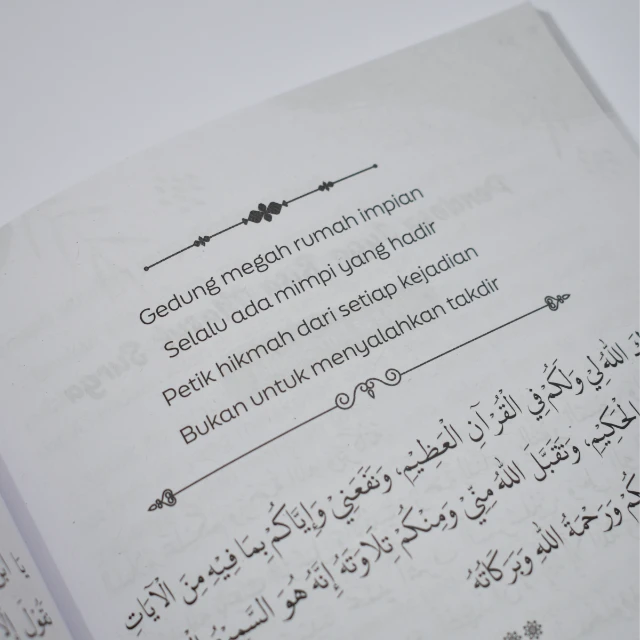 Gedung megah rumah impian
Selalu ada mimpi yang hadir
Petik hikmah dari setiap kejadian
Bukan untuk menyalahkan takdir
اللهُ لِي وَلَكُمْ فِي الْقُرْآنِ الْعَظِيْمِ، وَنَفَعَنِيْ وَإِيَّاكُمْ بِمَا فِيْهِ مِنَ الْآيَاتِ
الْحَكِيْمِ، وَتَقَبَّلَ اللهُ مِنِّيْ وَمِنْكُمْ تِلَاوَتَهُ إِنَّهُ هُوَ السَّمِيْعُ
وَرَحْمَةُ اللهِ وَبَرَكَاتُهُ